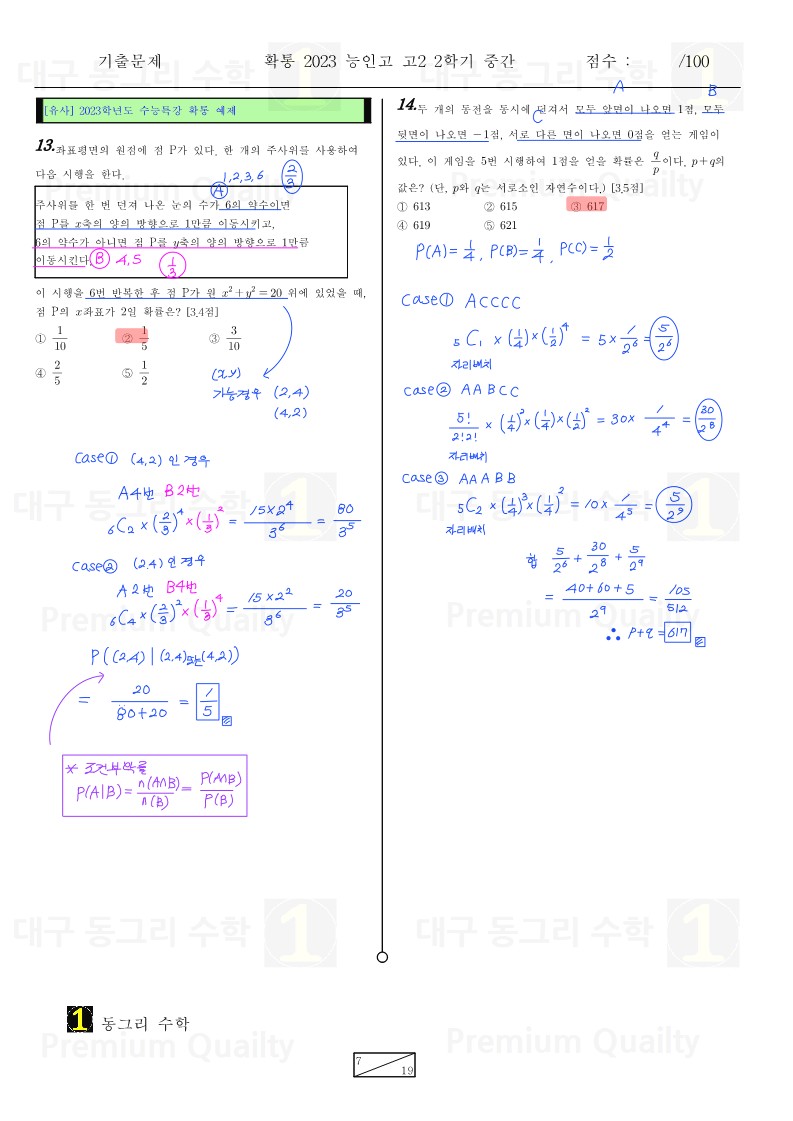 기출문제 확통 2023 능인고 고2 2학기 중간 점수 : /100
[유사] 2023학년도 수능특강 확통 예제
13.좌표평면의 원점에 점 P가 있다. 한 개의 주사위를 사용하여
다음 시행을 한다.
Ⓐ 1,2,3,6 2/3
주사위를 한 번 던져 나온 눈의 수가 6의 약수이면
점 P를 x축의 양의 방향으로 1만큼 이동시키고,
6의 약수가 아니면 점 P를 y축의 양의 방향으로 1만큼
이동시킨다. Ⓑ 4,5 1/3
이 시행을 6번 반복한 후 점 P가 원 x²+y²=20 위에 있었을 때,
점 P의 x좌표가 2일 확률은? [3.4점]
① 1/10 ② 1/5 ③ 3/10
④ 2/5 ⑤ 1/2
(x,y)
가능경우 (2,4)
(4,2)
case① (4,2) 인 경우
A4번 B2번
₆C₂ × (2/3)⁴ × (1/3)² = 15×2⁴/3⁶ = 80/3⁵
case② (2,4) 인 경우
A2번 B4번
₆C₄ × (2/3)² × (1/3)⁴ = 15×2²/3⁶ = 20/3⁵
P((2,4) | (2,4)또는(4,2))
= 20/(80+20) = 1/5
* 조건부확률
P(A|B) = n(A∩B)/n(B) = P(A∩B)/P(B)
A B
14.두 개의 동전을 동시에 던져서 모두 앞면이 나오면 1점, 모두
C
뒷면이 나오면 −1점, 서로 다른 면이 나오면 0점을 얻는 게임이
있다. 이 게임을 5번 시행하여 1점을 얻을 확률은 q/p이다. p+q의
값은? (단, p와 q는 서로소인 자연수이다.) [3.5점]
① 613 ② 615 ③ 617
④ 619 ⑤ 621
P(A)= 1/4, P(B)= 1/4, P(C)= 1/2
Case① ACCCC
₅C₁ × (1/4) × (1/2)⁴ = 5 × 1/2⁶ = 5/2⁶
자리배치
case② AABCC
5!/2!2! × (1/4)² × (1/4) × (1/2)² = 30 × 1/4⁴ = 30/2⁸
자리배치
case③ AAABB
₅C₂ × (1/4)³ × (1/4)² = 10 × 1/4⁵ = 5/2⁹
자리배치
합 5/2⁶ + 30/2⁸ + 5/2⁹
= (40+60+5)/2⁹ = 105/512
∴ p+q = 617
1 동그리 수학
7 19
대구 동그리 수학 1
Premium Quailty